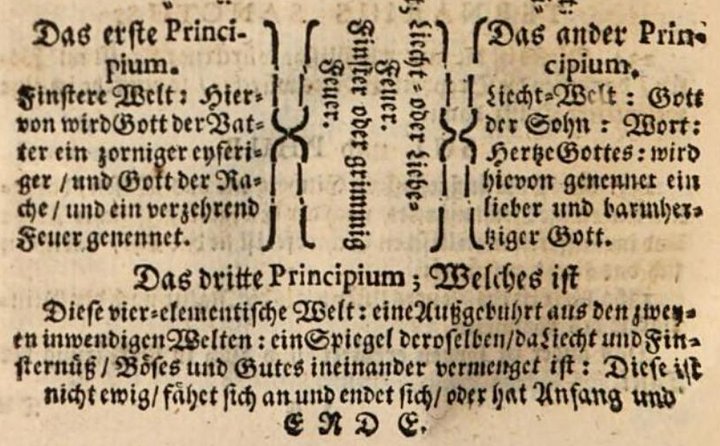 Das erste Princi-
pium.
Finstere Welt: Hier-
von wird Gott der Vat-
ter ein zorniger eyferi-
ger / und Gott der Ra-
che / und ein verzehrend
Feuer genennet.
Finster oder grimmig
Feuer.
Liecht- oder Liebe-
Feuer.
Das ander Prin-
cipium.
Liecht-Welt: Gott
der Sohn: Wort:
Hertze Gottes: wird
hievon genennet ein
lieber und barmher-
tziger Gott.
Das dritte Principium; Welches ist
Diese vier-elementische Welt: eine Außgebuhrt aus den zwey-
en inwendigen Welten: ein Spiegel deroselben/da Liecht und Fin-
sternüß / Böses und Gutes ineinander vermenget ist: Diese ist
nicht ewig/ fähet sich an und endet sich/ oder hat Anfang und
ENDE.